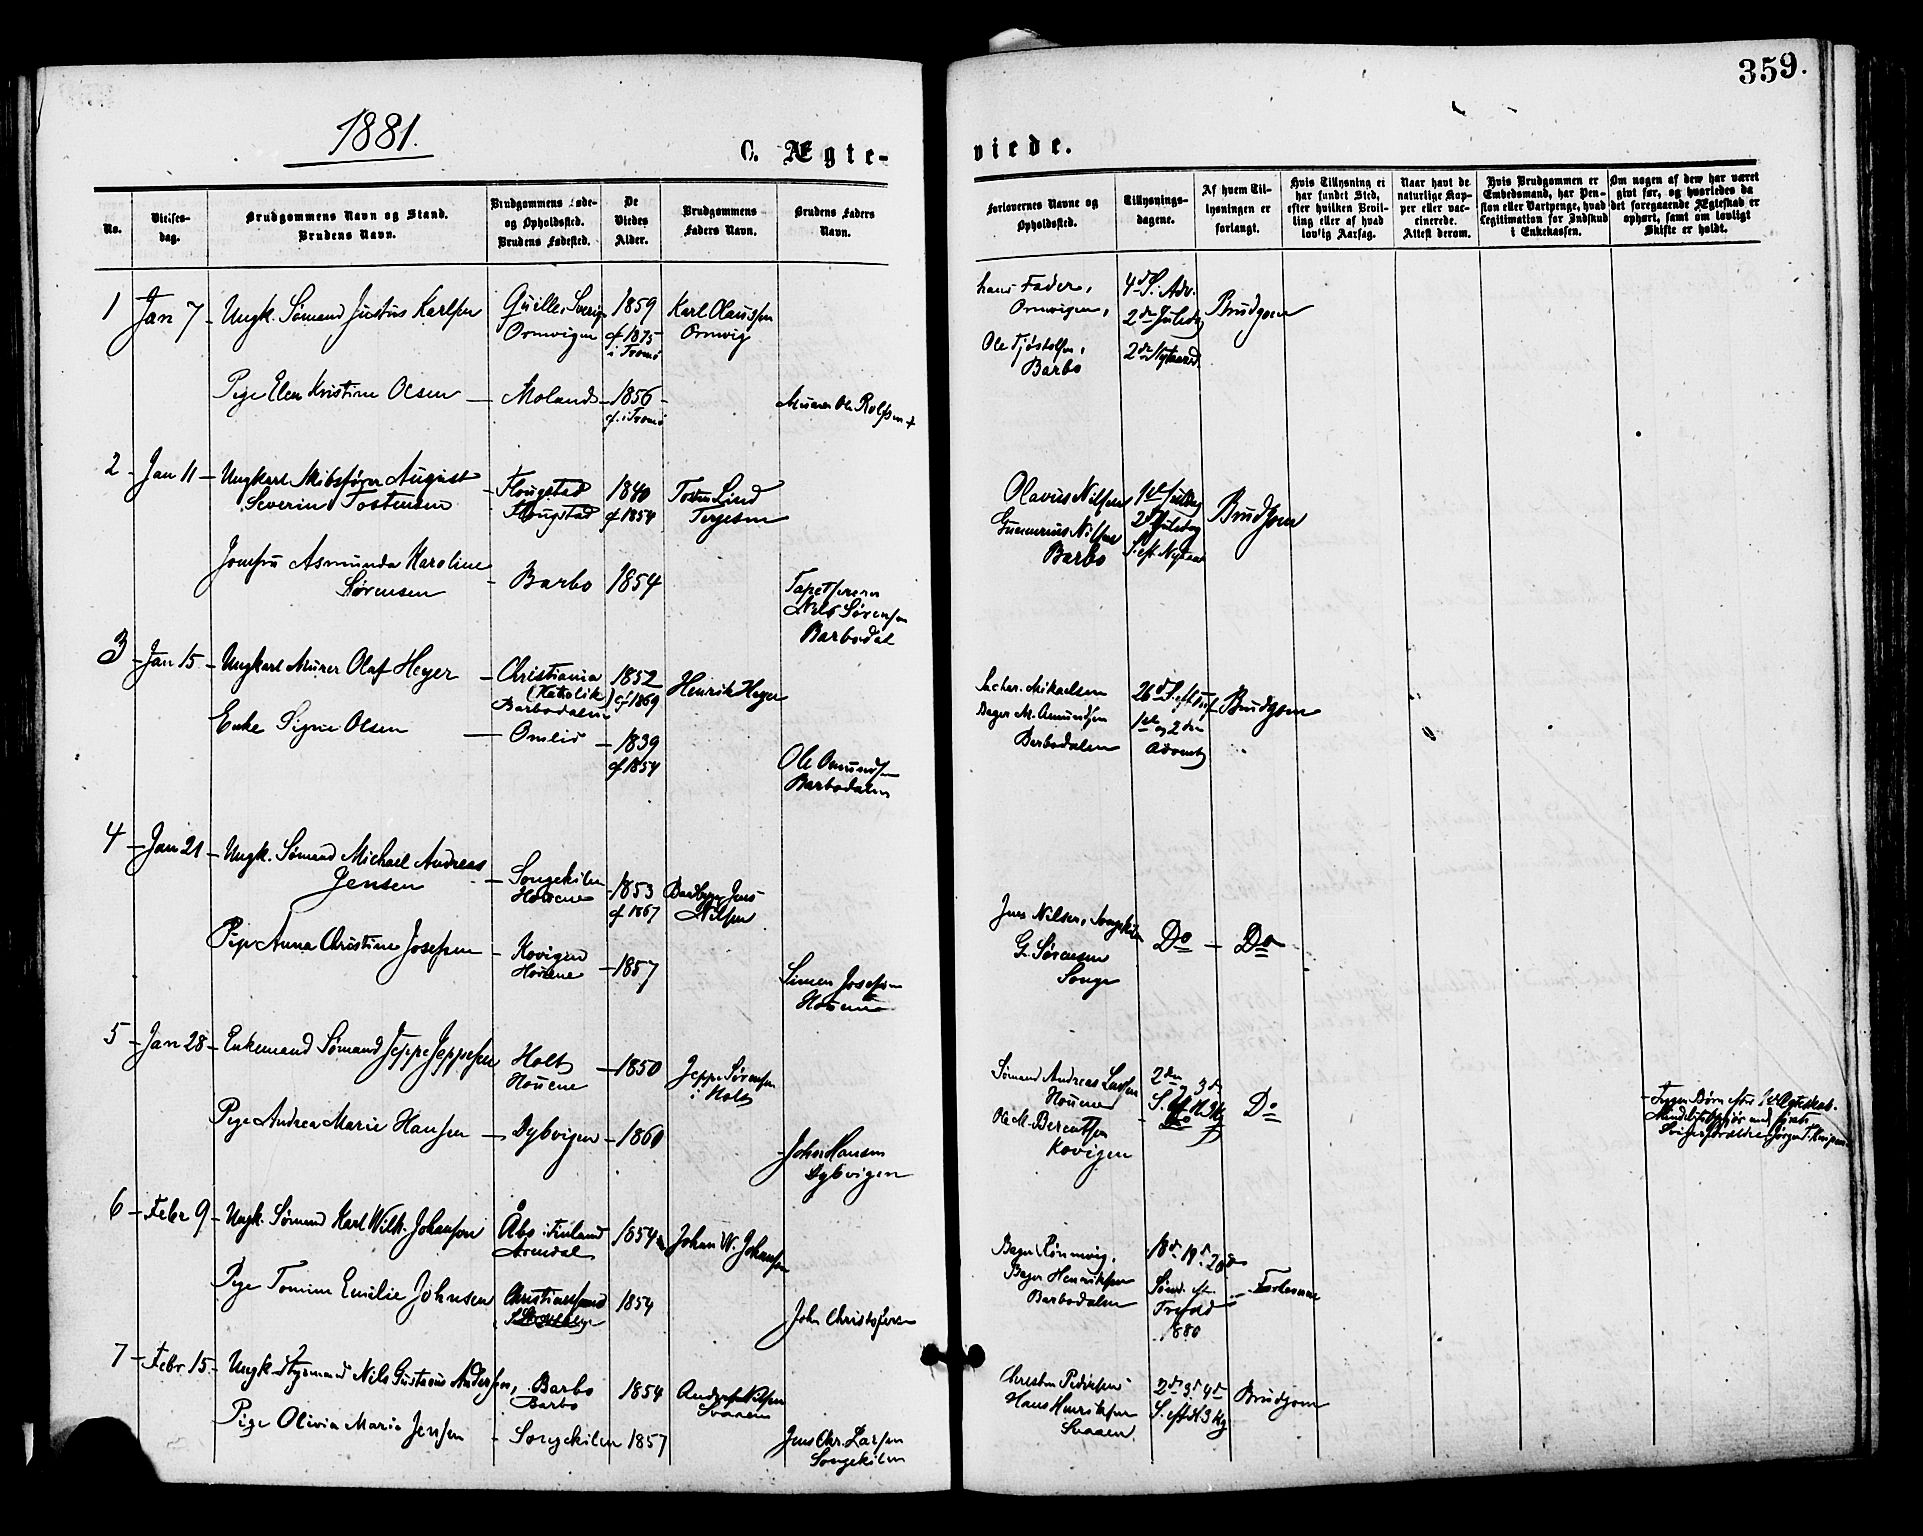 359.
1881.
C. Ægte- viede.
No.
Vielses-
dag.
Brudgommens Navn og Stand.
Brudens Navn.
Brudgommens Føde-
og Opholdssted.
Brudens Fødested.
De
Viedes
Alder.
Brudgommens
Faders Navn.
Brudens Faders
Navn.
Forlovernes Navne og
Opholdssted.
Tillysnings-
dagene.
Af hvem Til-
lysningen er
forlangt.
Hvis Tillysning ei
har fundet Sted,
efter hvilken Bevil-
ling eller af hvad
lovlig Aarsag.
Naar havt de
naturlige Kop-
per eller vac-
cinerede.
Attest derom.
Hvis Brudgommen er
Embedsmand, har Pen-
sion eller Vartpenge, hvad
Legitimation for Indskud
i Enkekassen.
Om nogen af dem har været
gift før, og hvorledes da
det foregaaende Ægteskab er
ophørt, samt om lovligt
Skifte er holdt.
1 Jan 7 - Ungk. Sømand Justus Karlsen
Ornvigen
1859
cf 1875
i Tromø
Karl Olaussen
Ornvig
hans Fader,
Ornvigen,
Ole Tjøstolfsen,
Barbo
4de S. Adv.
2den Juledag
2den Nytaarsd.
Brudgom
Pige Elen Kristine Olsen - Moland - 1856
cf. i Tromø
Murer Ole Rolfsen +
2 - Jan 11 - Ungkarl Skibsfører August
Severin Tostensen
Flougstad
Flougstad
1840
cf 1854
Lind
Terjesen
Olavus Nilsen
Gunnerius Nilsen
Barbo
1ste Juledag
2den Juledag
S. eft Nytaar
Brudgom
Jomfru Asmunda Karoline
Sørensen
Barbo 1854
Nils Sørensen
Barbodal
3 - Jan 15 - Ungkarl Murer Olaf Heyer
Christiania
(Katolik)
Barbodalen
1852
cf 1869
Henrik Heyer
Zachar. Mikaelsen
Bager M. Asmundsen
Barbodalen
1ste og 2den
Advent
Brudgom
Enke Signe Olsen - Omlid - 1839
cf 1854
Ole Asmundsen
Barbodalen
4 - Jan 21 - Ungk. Sømand Michael Andreas
Jensen
Songekilen
Houene
1853
cf 1867
Jens
Nilsen
Jens Nilsen, Songekilen
G. Sørensen
Songe
Do - Do
Pige Anna Christine Josefsen
Kovigen
Houene
1857
Simen Josefsen
Houene
5 - Jan 28 - Enkemand Sømand Jeppe Jeppesen
Holt
Houene
1850
Jeppe Sørensen
i Holt
Sømand Andreas Larsen
Houene
Ole M. Berentsen
Kovigen
2den og 3de
S. eft H3K
Do
Pige Andrea Marie Hansen - Dybvigen - 1860
John Hansen
Dybvigen
Ingen Børn efter 1ste Ægteskab.
6 - Febr 9 - Ungk. Sømand Karl Wilh. Johansson
Åbo i Finland
Arendal
1854
Johan W. Johansson
Bager Rønnevig,
Bager Henriksen
Barbodalen
18de 19de 20de
Sønd. eft
Trefold
1880
Forloverne
Pige Tomine Emilie Johnsen
Christianssand
1854
John Christofersen
7 - Febr 15 - Ungk. Styrmand Nils Gustavus Andersen,
Barbo
Barbo
1854
Anders Nilsen
Svaaen
Christen Pedersen
Hans Henriksen
Svaaen
2den 3de 4de
S. eft H3Kg
Brudgom
Pige Olivia Marie Jensen - Songekilen 1857
Jens Chr. Larsen
Songekilen